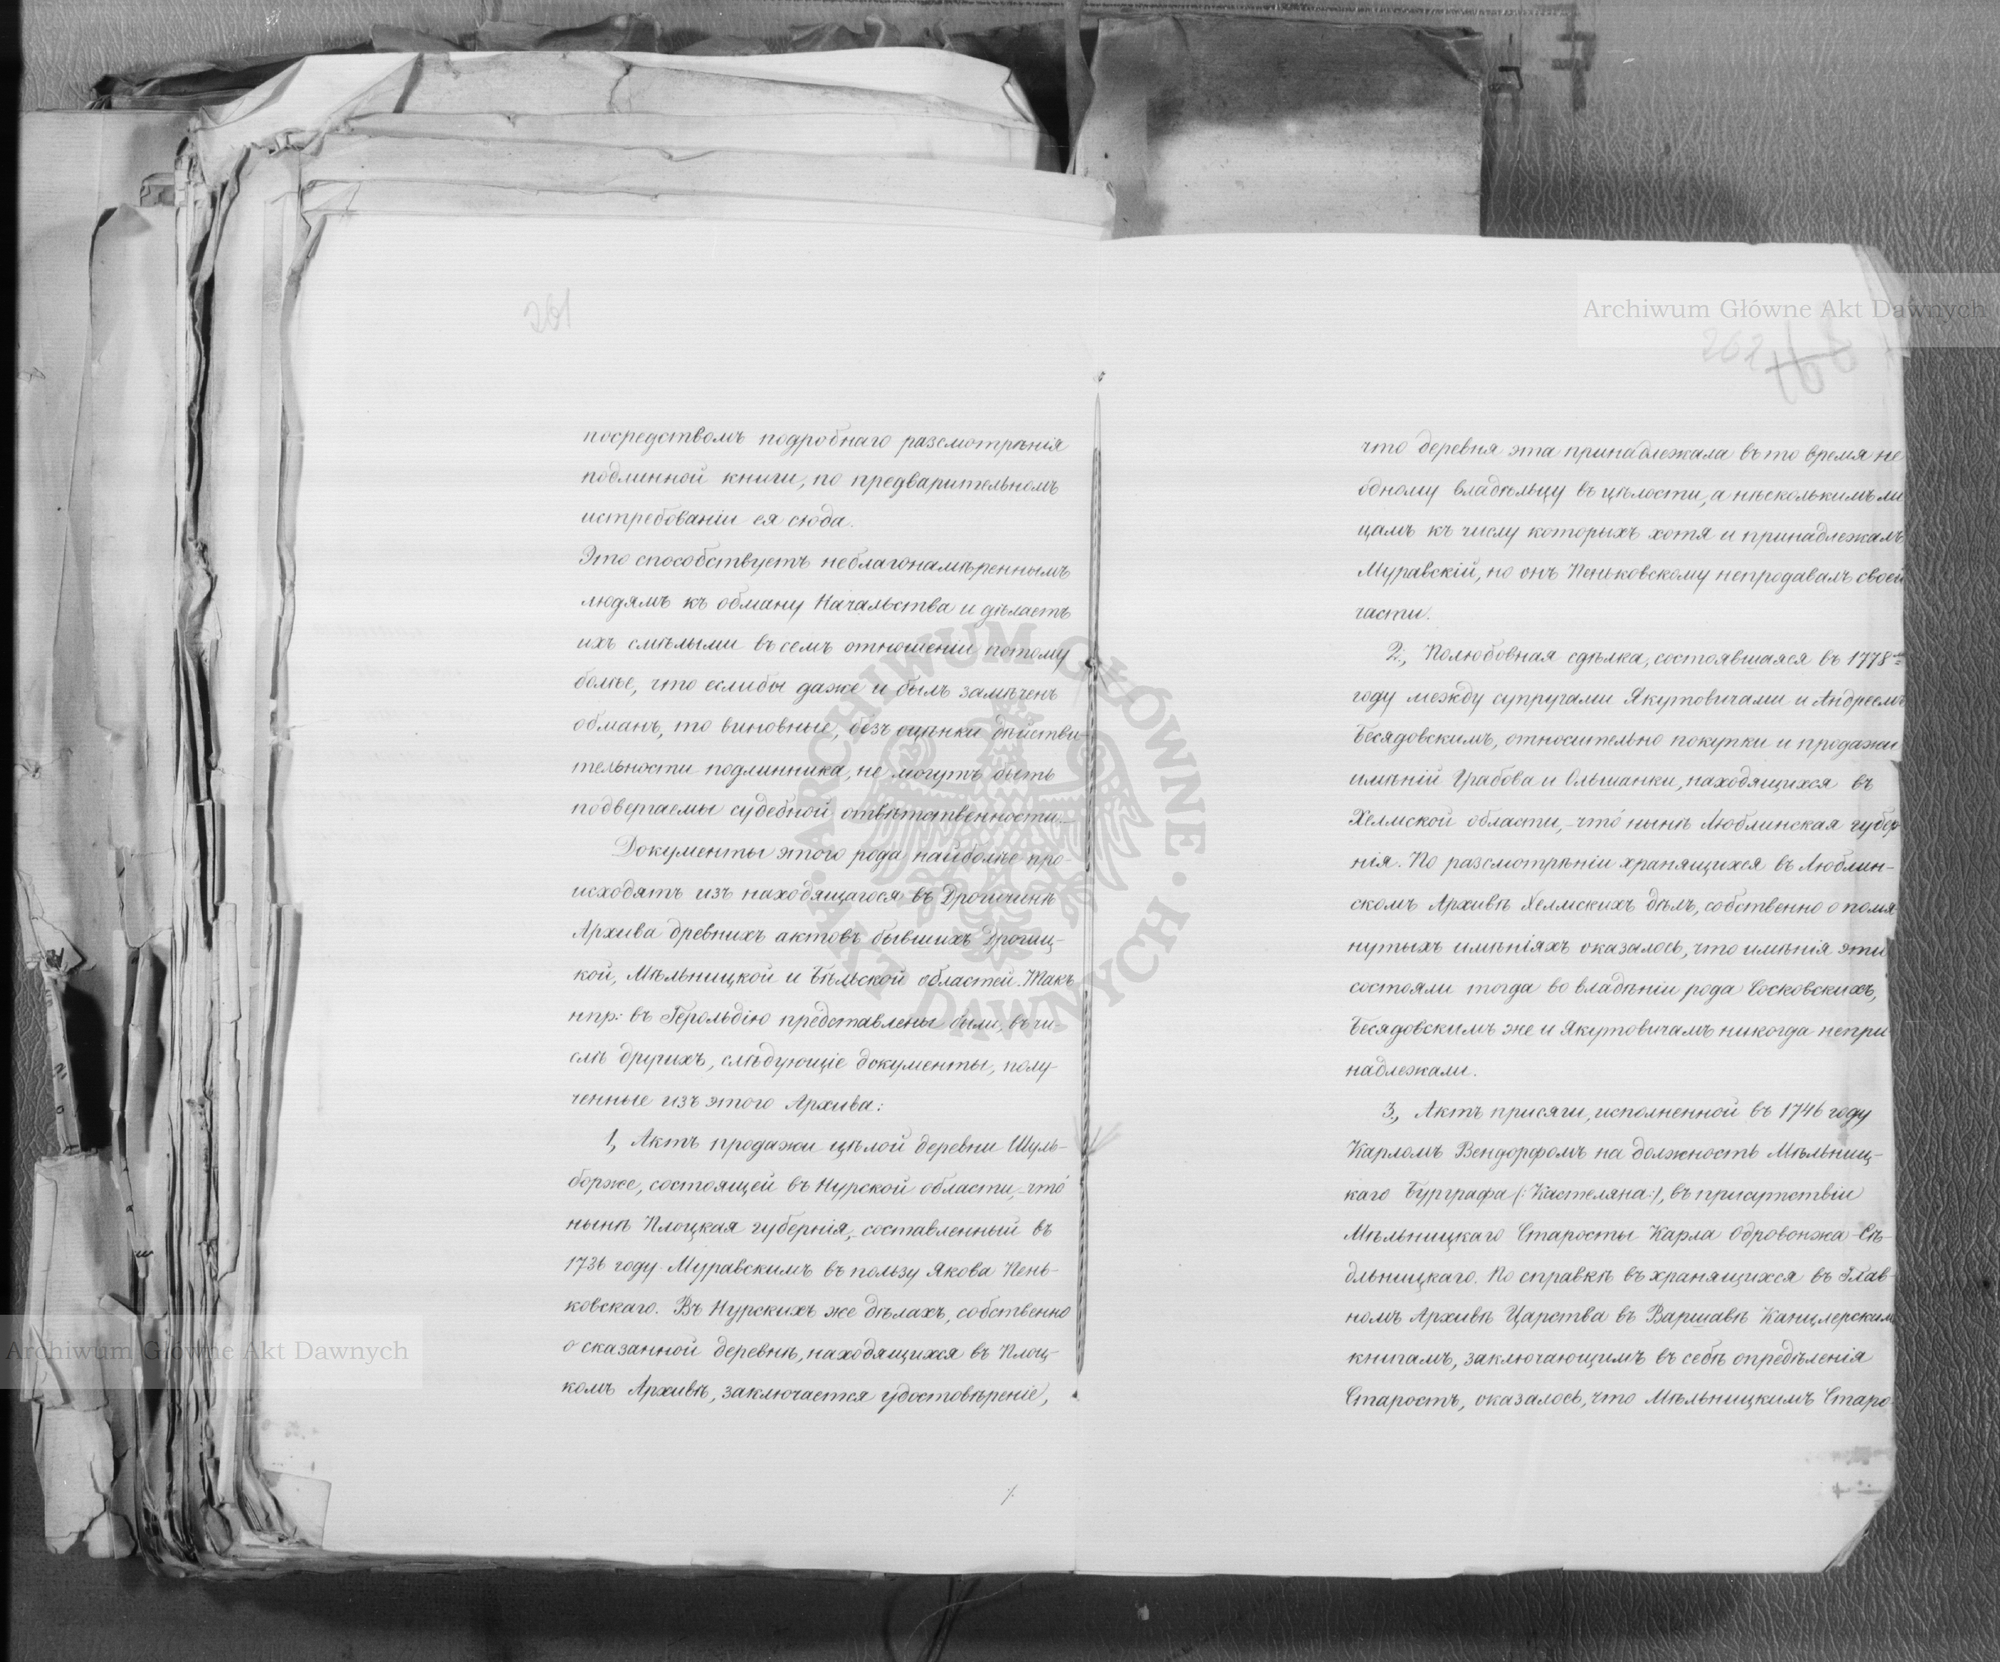 261
посредствомъ подробнаго разсмотрѣнія
подлинной книги, по предварительномъ
истребованіи ея сюда.
Это способствуетъ неблагонамѣреннымъ
людямъ къ обману Начальства и дѣлаетъ
ихъ смѣлыми въ семъ отношеніи потому
болѣе, что еслибы даже и былъ замѣченъ
обманъ, то виновные, безъ оцѣнки дѣйстви-
тельности подлинника, не могутъ быть
подвергаемы судебной отвѣтственности.
Документы этого рода наиболѣе про-
исходятъ изъ находящагося въ Дрогичинѣ
Архива древнихъ актовъ бывшихъ Дрогиц-
кой, Мѣльницкой и Бѣльской областей. Такъ
нпр: въ Герольдію представлены были, въ чи-
слѣ другихъ, слѣдующіе документы, полу-
ченные изъ этого Архива:
1, Актъ продажи цѣлой деревни Шуль-
борже, состоящей въ Нурской области, что
нынѣ Плоцкая губернія, составленный въ
1736 году Муравскимъ въ пользу Якова Пень-
ковскаго. Въ Нурскихъ же дѣлахъ, собственно
о сказанной деревнѣ, находящихся въ Плоц-
комъ Архивѣ, заключается удостовѣреніе,
Archiwum Główne Akt Dawnych
262
что деревня эта принадлежала въ то время не
одному владѣльцу въ цѣлости, а нѣсколькимъ ли
цамъ къ числу которыхъ хотя и принадлежалъ
Муравскій, но онъ Пеньковскому непродавалъ своей
части.
2, Полюбовная сдѣлка, состоявшаяся въ 1778
году между супругами Якутовичами и Андреемъ
Бесядовскимъ, относительно покупки и продажи
имѣній Грабова и Ольшанки, находящихся въ
Хелмской области, что нынѣ Люблинская губер
нія. По разсмотрѣніи хранящихся въ Люблин-
скомъ Архивѣ Хелмскихъ дѣлъ, собственно о помя
нутыхъ имѣніяхъ оказалось, что имѣнія эти
состояли тогда во владѣніи рода Сосковскихъ,
Бесядовскимъ же и Якутовичамъ никогда непри
надлежали.
3, Актъ присяги, исполненной въ 1746 году
Карломъ Вендорфомъ на должность Мѣльниц-
каго Бурграфа (:Кастеляна:), въ присутствіи
Мѣльницкаго Старосты Карла Одровонжа Сѣ-
дльницкаго. По справкѣ въ хранящихся въ Глав-
номъ Архивѣ Царства въ Варшавѣ Канцлерскимъ
книгамъ, заключающимъ въ себѣ опредѣленія
Старостъ, оказалось, что Мѣльницкимъ Старо
Archiwum Główne Akt Dawnych
ARCHIWUM GŁÓWNE AKT DAWNYCH